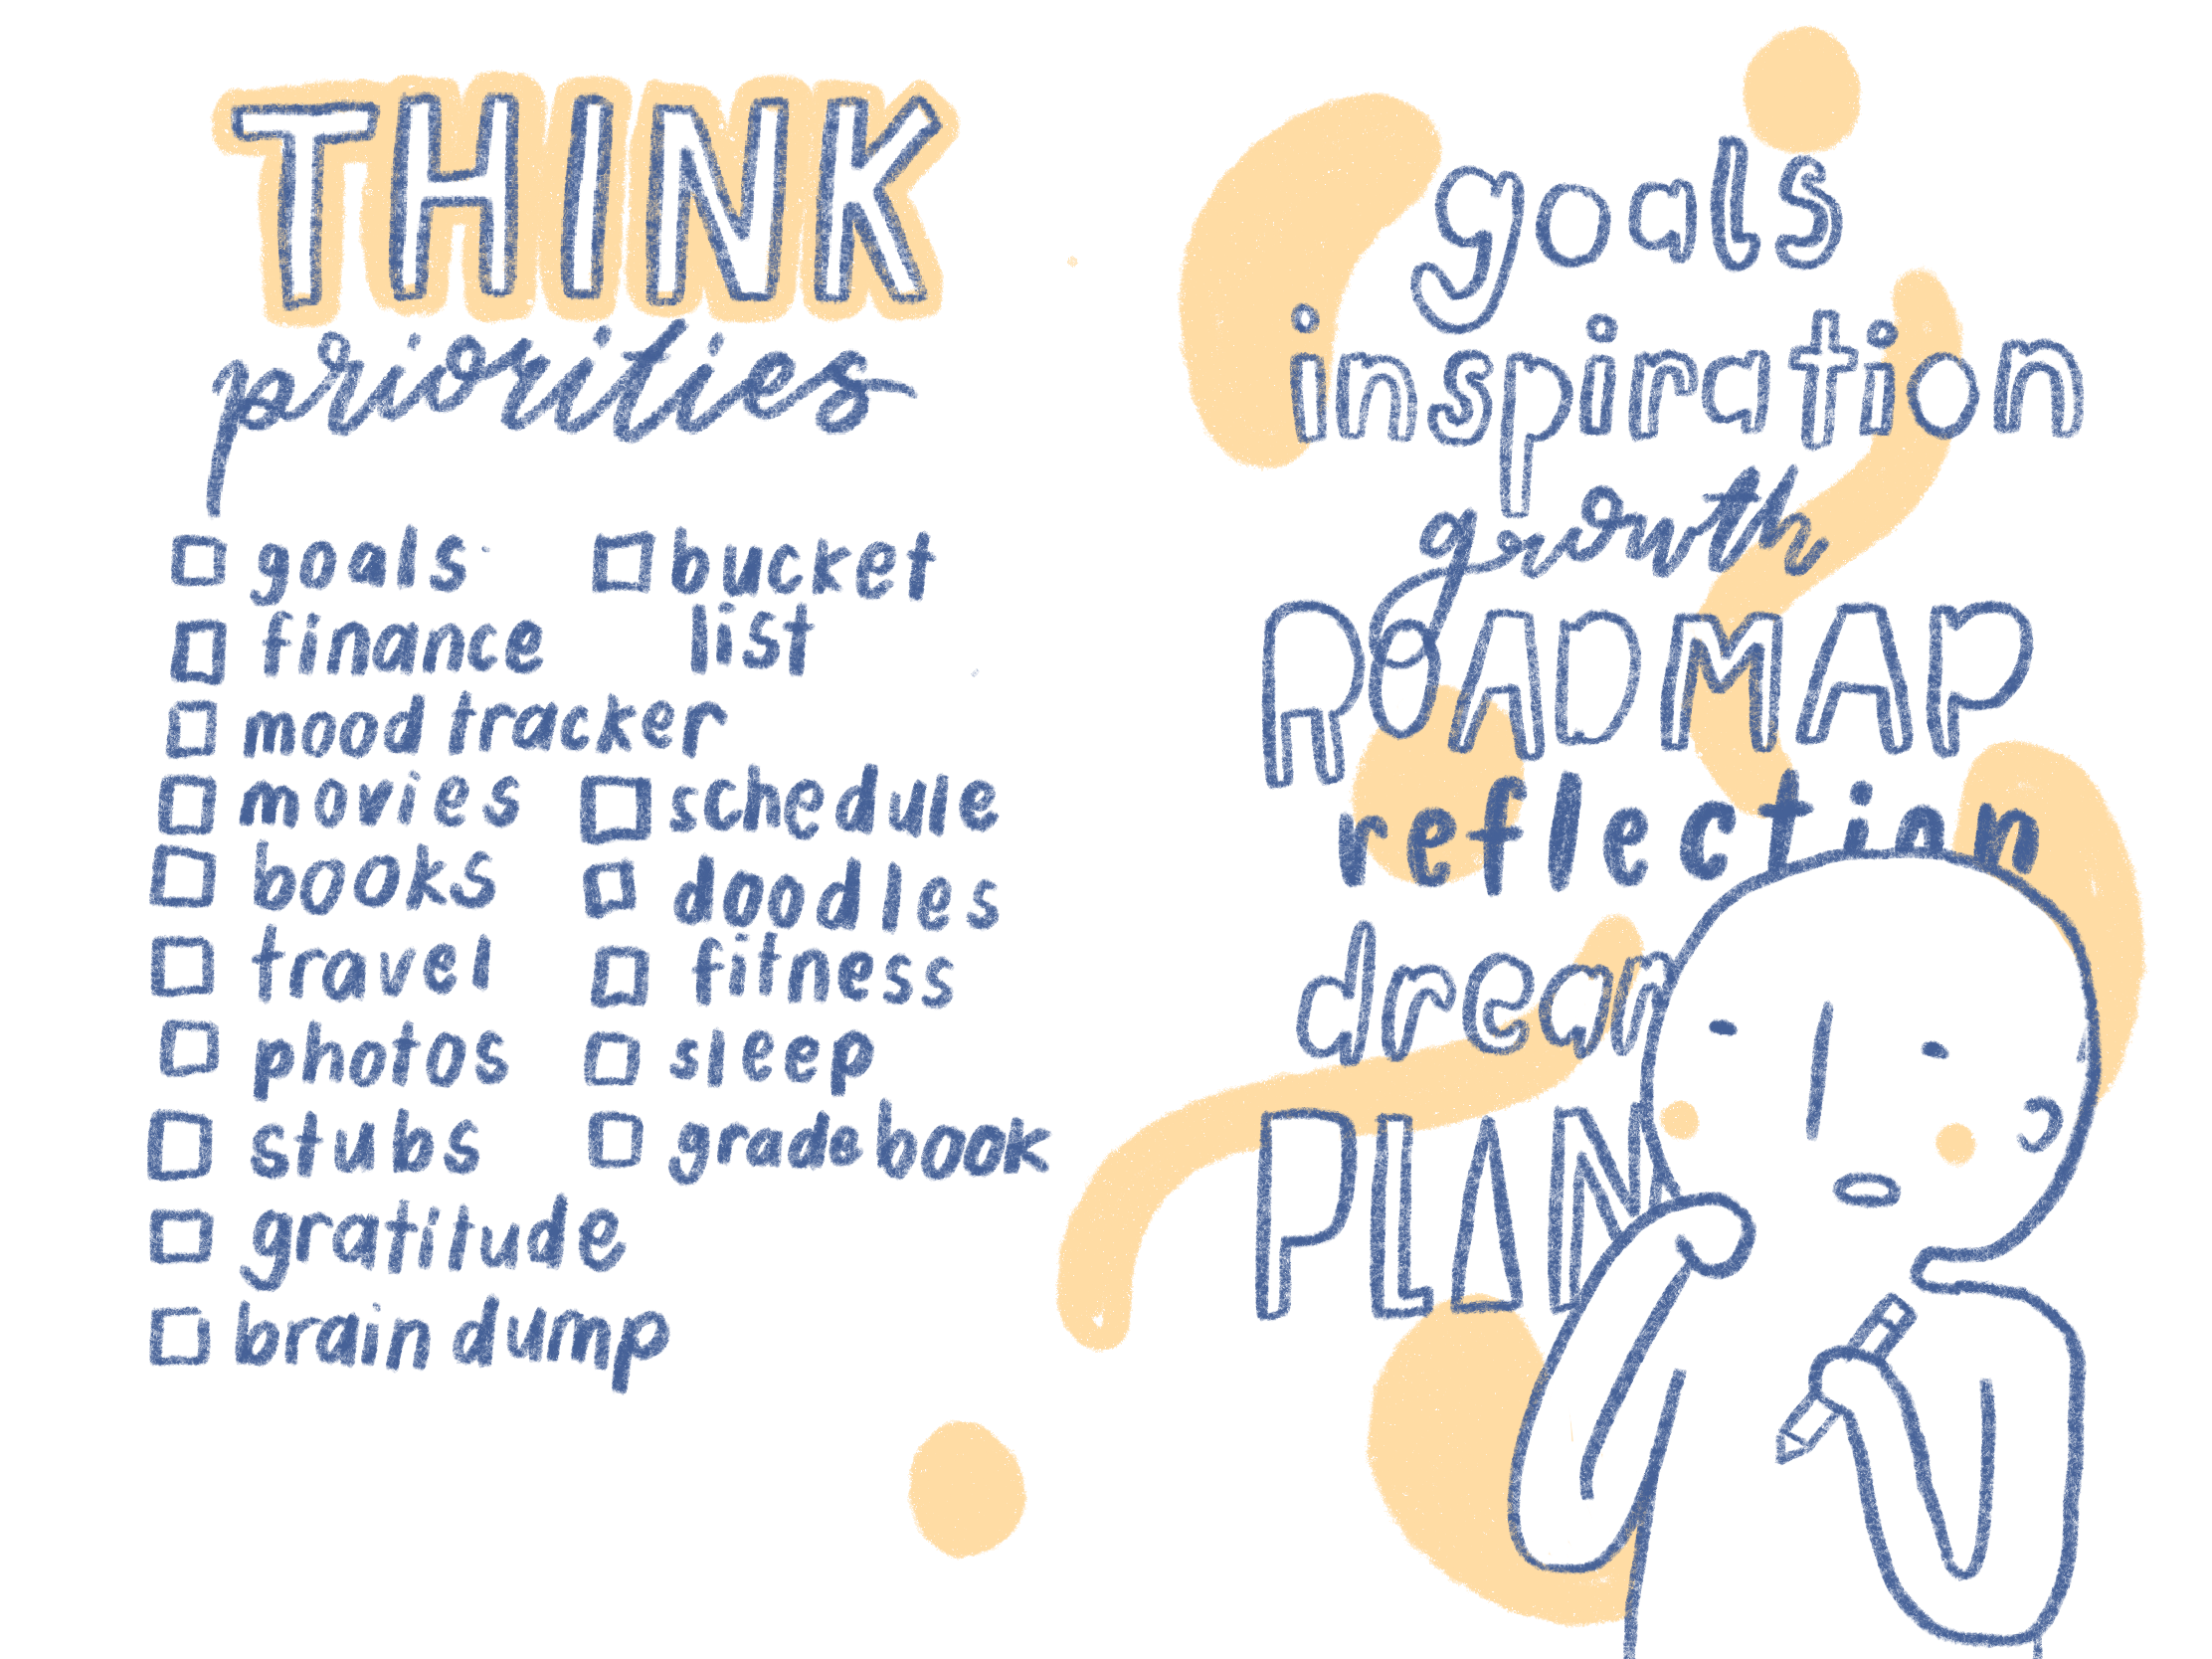 THINK
priorities
goals
finance
mood tracker
movies
books
travel
photos
stubs
gratitude
brain dump
bucket
list
schedule
doodles
fitness
sleep
gradebook
goals
inspiration
growth
ROADMAP
reflection
drear
PLAN